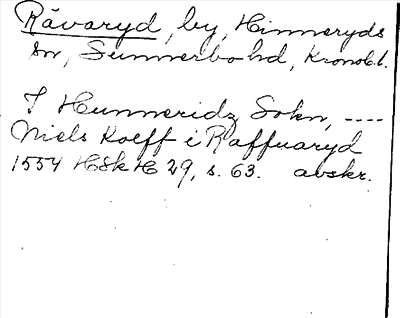 Råvaryd, by, Hinneryds
sn, Sunnerbo hd, Kronob.l.
I Hunneridz Sokn, ----
Niels Koeff i Raffuaryd
1554 HSkH 29, s. 63. avskr.